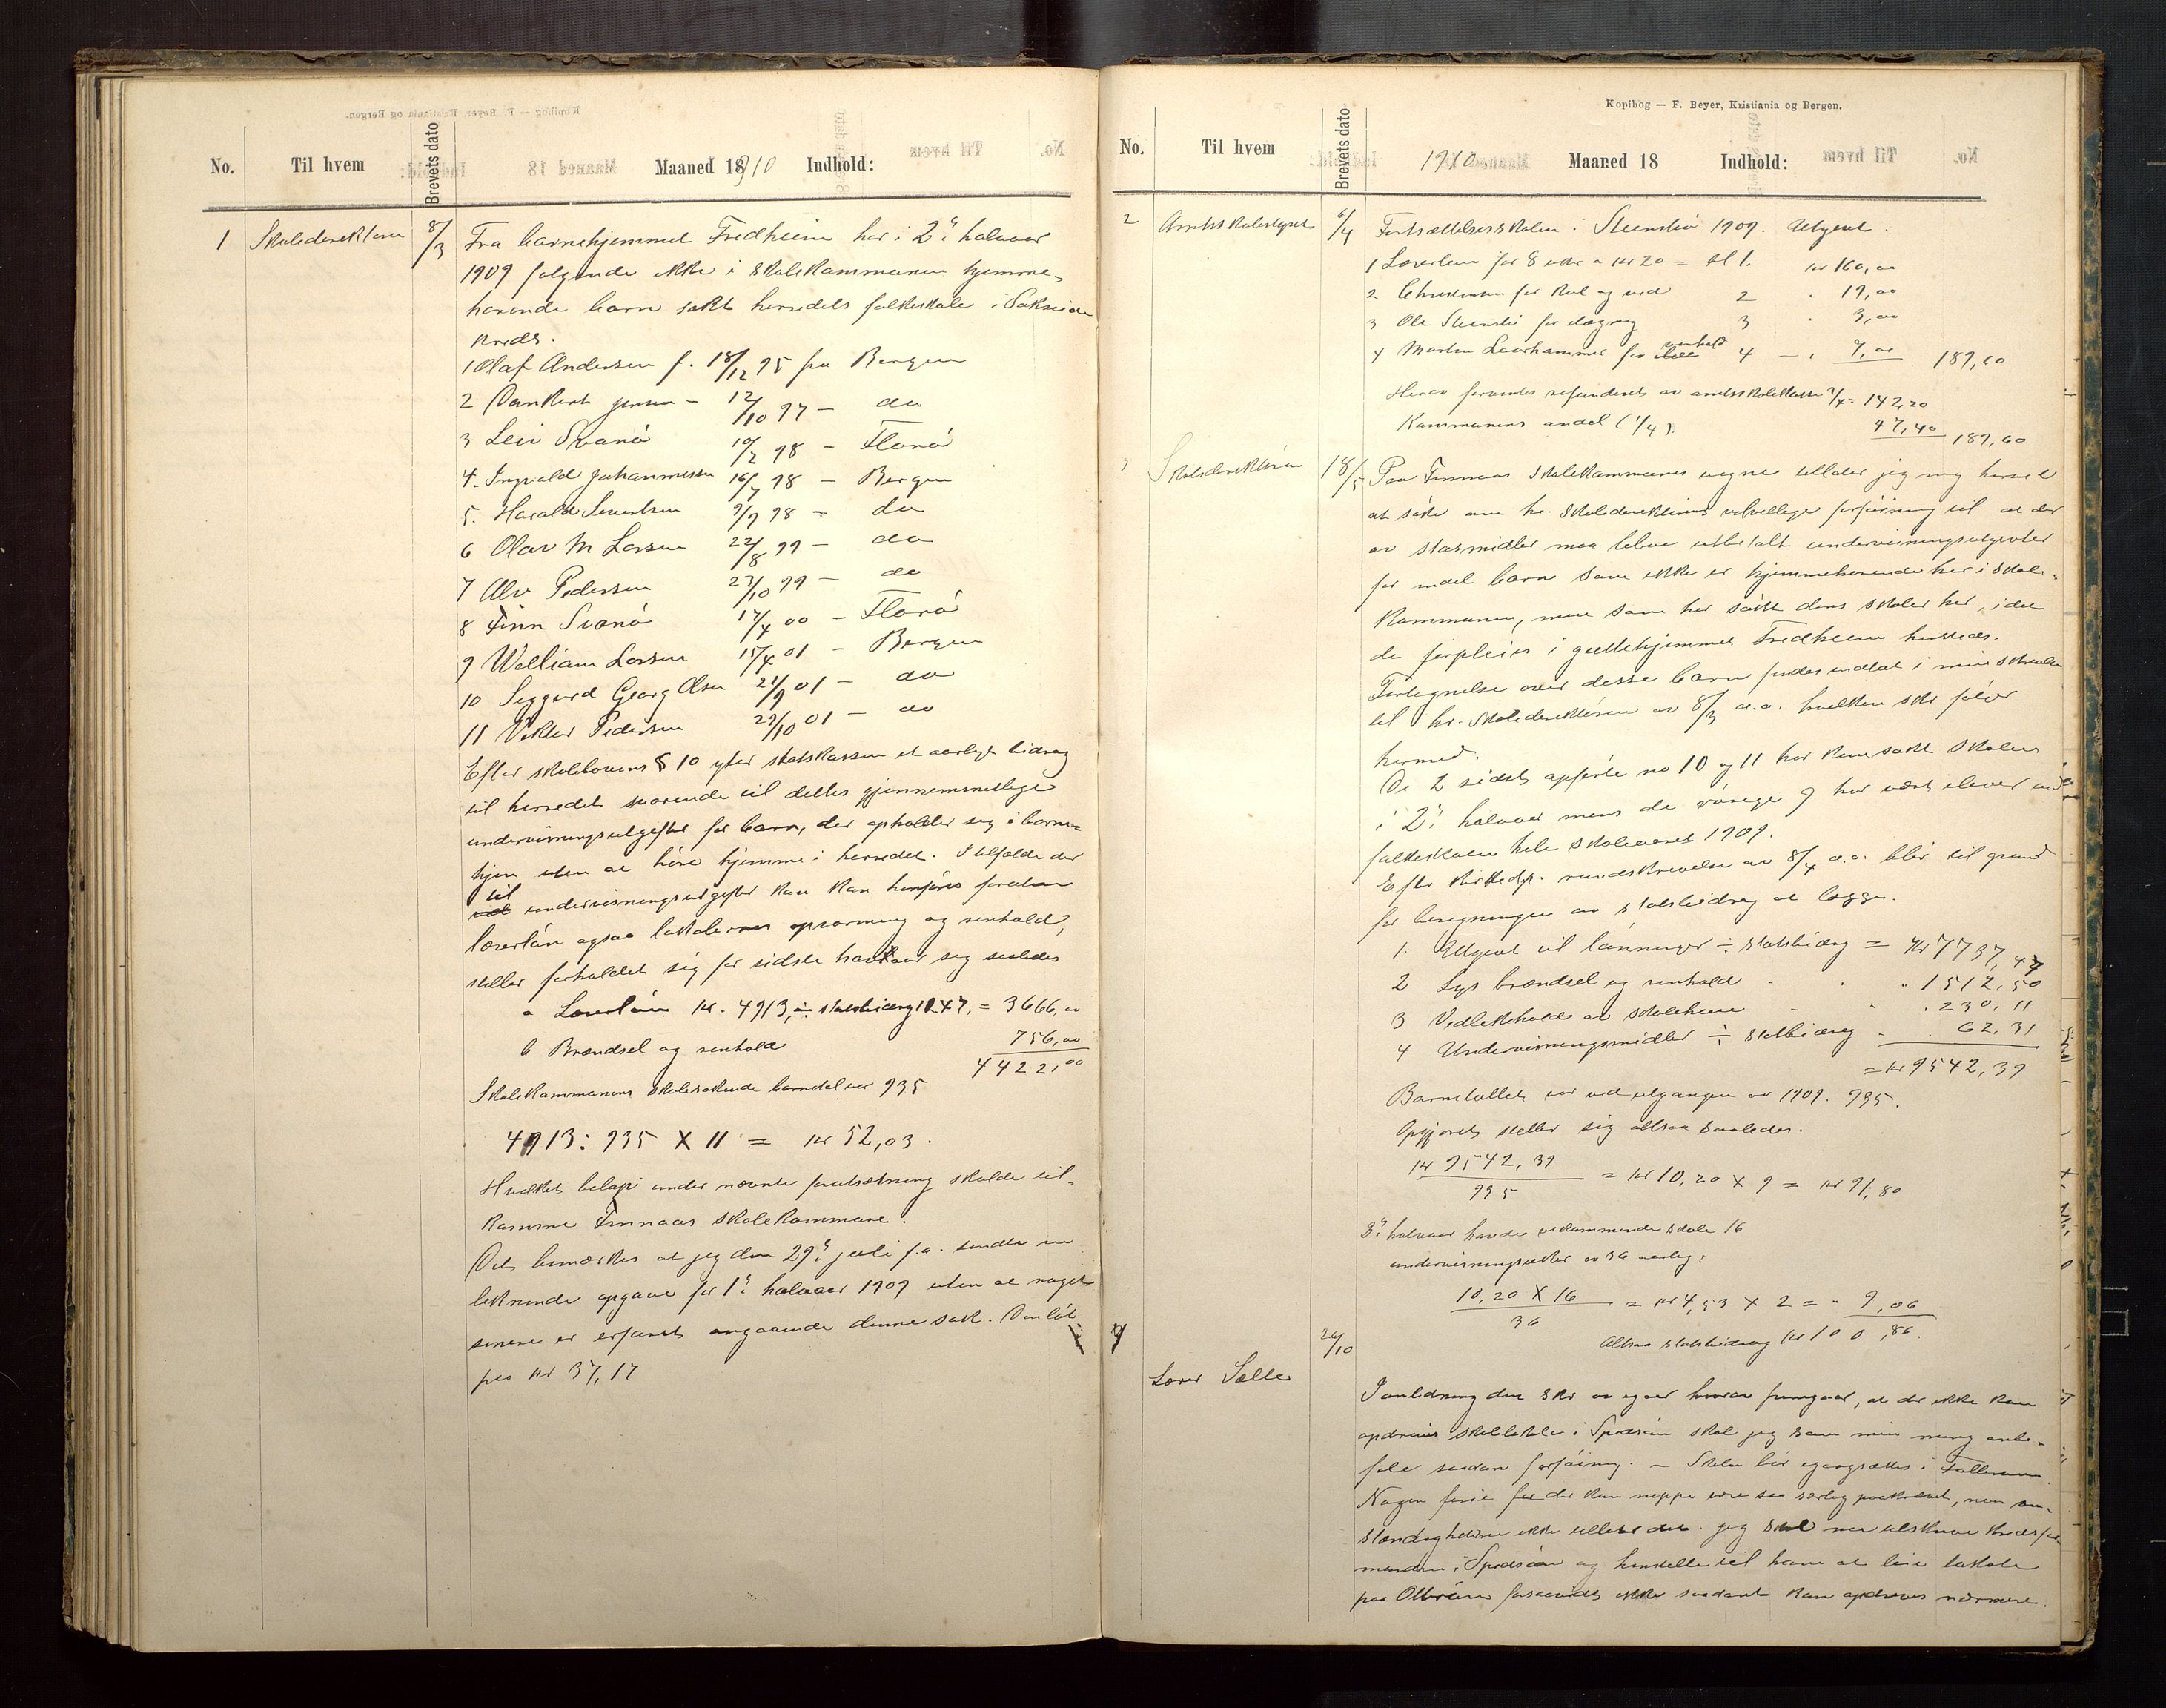 No. Til hvem Brevets dato Maaned 18 1910 Indhold:
1 Skoledirektøren 8/3 Fra barnehjemmet Fredheim har i 2det halvaar
1909 følgende ikke i skolekommunen hjemme-
hørende barn søkt herredets folkeskole i
kreds.
1 Olaf Andersen f. 18/12 95 fra Bergen
2 Jensen - 12/10 97 - do
3 Leiv Svanö 19/2 98 - Florö
4. Ingvald Johannessen 16/7 98 - Bergen
5. Harald Sivertsen 9/9 98 - do
6 Olav M Larsen 22/8 99 - do
7 Alv Pedersen 23/10 99 - do
8 Finn Svanö 17/4 00 - Florö
9 William Larsen 15/4 01 - Bergen
10 Siggurd Georg Olsen 21/9 01 - do
11 Viktor Pedersen 29/10 01 - do
Efter skolelovens § 10 yter statskassen et aarlige bidrag
til herredet svarende til dettes gjennemsnitlige
undervisningsutgifter for barn, der opholder sig i barne-
hjem uten at höre hjemme i herredet. I tilfælde der
til undervisningsutgifter kan kan henföres foruten
lærerlön ogsaa lokalernes opvarming og renhold,
stiller forholdet sig for sidste halvaar sig saaledes
a Lærerlön kr. 4913, ÷ statsbidrag 1247, = 3666,00
b Brændsel og renhold 756,00
4422,00
Skolekommunens skolesøkende barnetal var 935
4913 : 935 X 11 = kr 52,03.
Hvilket belöp under nævnte forutsætning skulde til-
komme Finnaas skolekommune.
Det bemærkes at jeg den 29de juli f.a. sendte en
lignende opgave for 1ste halvaar 1909 uten at noget
senere er erfaret angaaende denne sak. Den löt
paa kr 37,17
Kopibog — F. Beyer, Kristiania og Bergen.
No. Til hvem Brevets dato 1910. Maaned 18 Indhold:
2 Amtsskolestyret 6/4 Fortsættelsesskolen i Steinsbö 1909. Utgivt.
1 Lærerlön for 8 uker a kr 20 = bil 1. kr 160,00
2 for kul og ved 2 " 19,00
3 Ole for 3 " 3,00
4 Martin for renhold 4 — " 7,00 189,60
Herav forventes refunderet av amtsskolekassen 3/4 = 142,20
Kommunens andel (1/4) 47,40 189,60
3 Skoledirektören 18/5 Paa Finnaas skolekommunes vegne tillater jeg mig herved
at söke om hr. skoledirektörens velvillige forföining til at der
av statsmidler maa bli utbetalt undervisningsutgivter
for endel barn som ikke er hjemmehörende her i skole-
kommunen, men som har sökt dens skoler her, idet
de forpleies i guttehjemmet Fredheim hersteds.
Fortegnelse over disse barn findes indtat i min skrivelse
til hr. Skoledirektören av 8/3 d.a. hvilken skr fölger
hermed.
De 2 sidst opförte no 10 og 11 har kun sökt skolen
i 2det halvaar mens de övrige 9 har vært elever ved
folkeskolen hele skoleaaret 1909.
Efter kirkedp. rundskrivelse av 8/4 d.a. blir til grund
for beregningen av statsbidrag at lægge.
1. Utgivt til lönninger ÷ statsbidrag = kr 7737,47
2 Lys brændsel og renhold " " " 1512,50
3 Vedlikehold av skolehuse " " " 230,11
4 Undervisningsmidler ÷ statsbidrag " " 62,31
= kr 9542,39
Barnetallet var ved utgangen av 1909. 935.
Opgjöret stiller sig altsaa saaledes.
kr 9542,39
935 = kr 10,20 X 9 = kr 91,80
2det halvaar havde vedkommende skole 16
undervisningsuker av 36 aarlig:
10,20 X 16
36 = kr 4,53 X 2 = " 9,06
Altsaa statsbidrag kr 100,86.
4 Lærer Sælle 26/10
I anledning din skr av igaar hvorav fremgaar, at der ikke kan
opdrives skolelokale i skal jeg som min mening anbe-
fale saadan forföining. - Skolen bör igangsættes i
Nogen ferie for der kan neppe være saa særlig paakrævet, men om-
stændigheterne ikke tillater det. Jeg skal nu tilskrive kredsfor-
manden i og henstille til ham at leie lokale
paa forsaavidt ikke saadant kan opdrives nærmere.